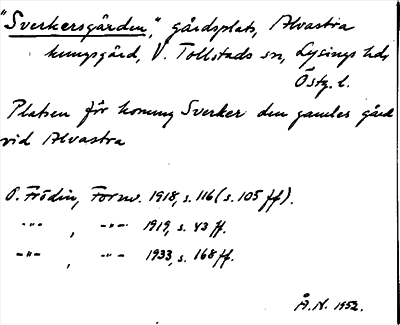 "Sverkersgården," gårdsplats, Alvastra
kungsgård, V. Tollstads sn, Lysings hd,
Östg. l.
Platsen för konung Sverker den gamles gård
vid Alvastra
O. Frödin, Fornv. 1918, s. 116 (s. 105 ff).
-"- , -"- 1919, s. 43 ff.
-"- , -"- 1933, s. 168 ff.
Å.N. 1952.